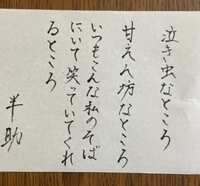 泣き虫なところ
甘えん坊なところ
いつもこんな私のそば
にいて笑っていてくれ
るところ
半助